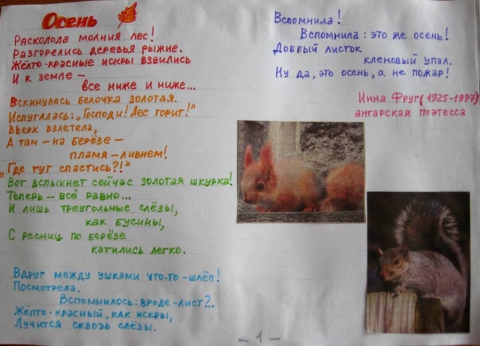 Осень
Расколола молния лес!
Разгорелись деревья рыжие.
Жёлто-красные искры взвились
И к земле –
все ниже и ниже...
Вскинулась белочка золотая.
Испугалась: „Господи! Лес горит!"
Вверх взлетела,
А там – на берёзе –
пламя-ливнем!
„Где тут спастись?!"
Вот вспыхнет сейчас золотая шкурка!
Теперь – всё равно...
И лишь треугольные слёзы,
как бусины,
С ресниц по берёзе
катились легко.
Вдруг между ушками что-то – шлёп!
Посмотрела.
Вспомнилось: вроде – лист?..
Жёлто-красный, как искры,
Лучится сквозь слёзы.
Вспомнила!
Вспомнила: это же осень!
Добрый листок
кленовый упал.
Ну да, это осень, а не пожар!
Инна Фруг (1925-1997)
ангарская поэтесса
– 1 –